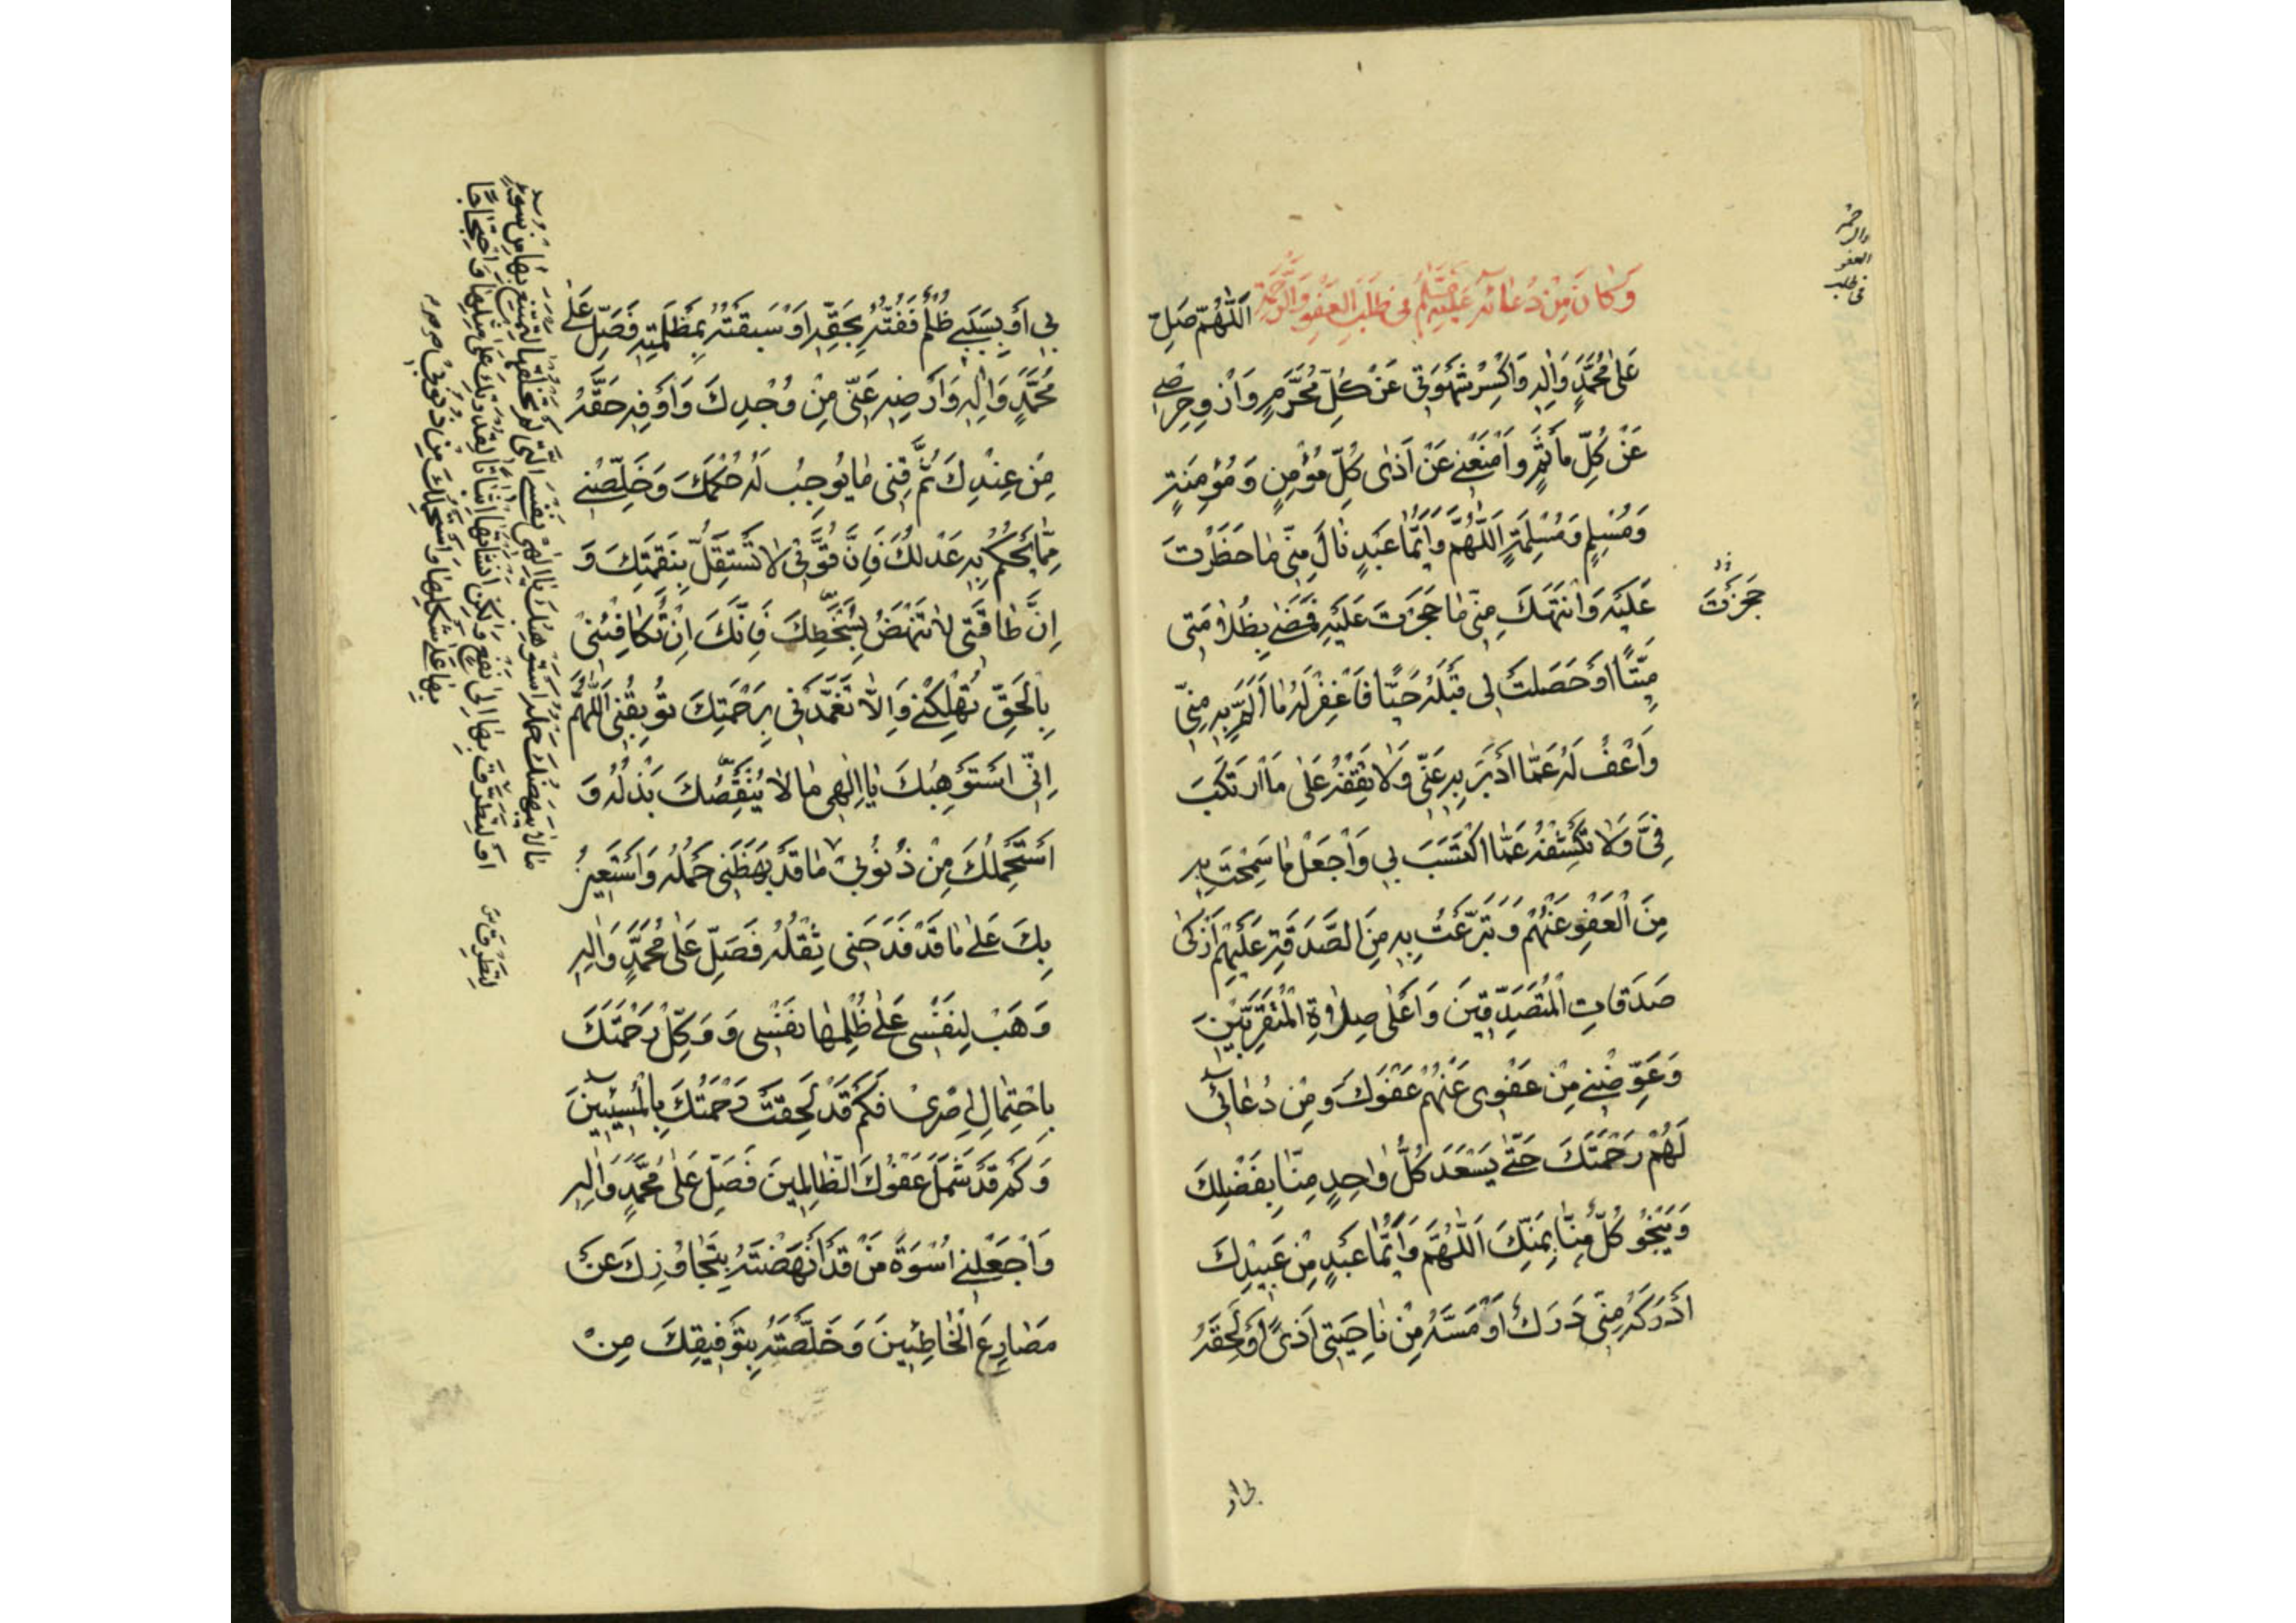 وَكَانَ مِنْ دُعَائِهِ عَلَيْهِ السَّلَامُ فِي طَلَبِ الْعَفْوِ وَالرَّحْمَةِ اَللّٰهُمَّ صَلِّ
عَلٰى مُحَمَّدٍ وَاٰلِهِ وَاكْسِرْ شَهْوَتِي عَنْ كُلِّ مُحَرَّمٍ وَازْوِ حِرْصِي
عَنْ كُلِّ مَأْثَمٍ وَامْنَعْنِي عَنْ اَذٰى كُلِّ مُؤْمِنٍ وَمُؤْمِنَةٍ
وَمُسْلِمٍ وَمُسْلِمَةٍ اَللّٰهُمَّ وَاَيُّمَا عَبْدٍ نَالَ مِنِّي مَا حَظَرْتَ
عَلَيْهِ وَانْتَهَكَ مِنِّي مَا حَجَرْتَ عَلَيْهِ فَمَضٰى بِظُلَامَتِي
مَيِّتًا اَوْ حَصَلَتْ لِي قِبَلَهُ حَيًّا فَاغْفِرْ لَهُ مَا اَلَمَّ بِهِ مِنِّي
وَاعْفُ لَهُ عَمَّا اَدْبَرَ بِهِ عَنِّي وَلَا تَقِفْهُ عَلٰى مَا ارْتَكَبَ
فِيَّ وَلَا تَكْشِفْهُ عَمَّا اكْتَسَبَ بِي وَاجْعَلْ مَا سَمِحْتُ بِهِ
مِنَ الْعَفْوِ عَنْهُمْ وَتَبَرَّعْتُ بِهِ مِنَ الصَّدَقَةِ عَلَيْهِمْ اَزْكٰى
صَدَقَاتِ الْمُتَصَدِّقِينَ وَاَعْلٰى صِلَاةِ الْمُتَقَرِّبِينَ
وَعَوِّضْنِي مِنْ عَفْوِي عَنْهُمْ عَفْوَكَ وَمِنْ دُعَائِي
لَهُمْ رَحْمَتَكَ حَتّٰى يَسْعَدَ كُلُّ وَاحِدٍ مِنَّا بِفَضْلِكَ
وَيَنْجُوَ كُلٌّ مِنَّا بِمَنِّكَ اَللّٰهُمَّ وَاَيُّمَا عَبْدٍ مِنْ عَبِيدِكَ
اَدْرَكَهُ مِنِّي دَرَكٌ اَوْ مَسَّهُ مِنْ نَاحِيَتِي اَذًى اَوْ لَحِقَهُ
فى طلب
العفو
والر
حمة
حَجَزْتَ
بى او
بِي اَوْ بِسَبَبِي ظُلْمٌ فَفُتُّهُ بِحَقِّهِ اَوْ سَبَقْتُهُ بِمَظْلَمَتِهِ فَصَلِّ عَلٰى
مُحَمَّدٍ وَاٰلِهِ وَاَرْضِهِ عَنِّي مِنْ وُجْدِكَ وَاَوْفِهِ حَقَّهُ
مِنْ عِنْدِكَ ثُمَّ قِنِي مَا يُوجِبُ لَهُ حُكْمُكَ وَخَلِّصْنِي
مِمَّا يَحْكُمُ بِهِ عَدْلُكَ فَاِنَّ قُوَّتِي لَا تَسْتَقِلُّ بِنَقِمَتِكَ وَ
اِنَّ طَاقَتِي لَا تَنْهَضُ بِسُخْطِكَ فَاِنَّكَ اِنْ تُكَافِئْنِي
بِالْحَقِّ تُهْلِكْنِي وَاِلَّا تَغَمَّدْنِي بِرَحْمَتِكَ تُوبِقْنِي اَللّٰهُمَّ
اِنِّي اَسْتَوْهِبُكَ يَا اِلٰهِي مَا لَا يُنْقِصُكَ بَذْلُهُ وَ
اَسْتَحْمِلُكَ مِنْ ذُنُوبِي مَا قَدْ بَهَظَنِي حَمْلُهُ وَاَسْتَعِينُ
بِكَ عَلٰى مَا قَدْ فَدَحَنِي ثِقْلُهُ فَصَلِّ عَلٰى مُحَمَّدٍ وَاٰلِهِ
وَهَبْ لِنَفْسِي عَلٰى ظُلْمِهَا نَفْسِي وَوَكِّلْ رَحْمَتَكَ
بِاحْتِمَالِ اِصْرِي فَكَمْ قَدْ لَحِقَتْ رَحْمَتُكَ بِالْمُسِيئِينَ
وَكَمْ قَدْ شَمِلَ عَفْوُكَ الظَّالِمِينَ فَصَلِّ عَلٰى مُحَمَّدٍ وَاٰلِهِ
وَاجْعَلْنِي اُسْوَةَ مَنْ قَدْ اَنْهَضْتَهُ بِتَجَاوُزِكَ عَنْ
مَصَارِعِ الْخَاطِئِينَ وَخَلَّصْتَهُ بِتَوْفِيقِكَ مِنْ
مَا لَا يَبْهَضُكَ حَمْلُهُ اَسْتَوْهِبُكَ يَا اِلٰهِي نَفْسِي الَّتِي لَمْ تَخْلُقْهَا لِتَمْتَنِعَ بِهَا مِنْ سُوءٍ
اَوْ لِتَطَرَّقَ بِهَا اِلٰى نَفْعٍ وَلٰكِنْ اَنْشَأْتَهَا اِثْبَاتًا لِقُدْرَتِكَ عَلٰى مِثْلِهَا وَاحْتِجَاجًا
بِهَا عَلٰى شَكْلِهَا وَاَسْتَحْمِلُكَ مِنْ ذُنُوبِي
لِتَطَرُّقٍ